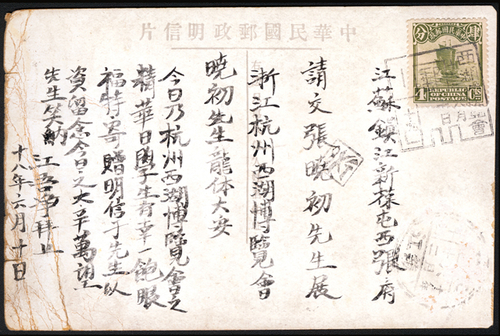 中華民國郵政明信片
江蘇鎮江新菉屯西張府
請交張曉初先生展
浙江杭州西湖博覽會
曉初先生龍体大安
今日乃杭州西湖博覽會之
精華日學生有幸一飽眼
福特寄贈明信于先生以
資留念今日之大幸萬望
先生笑納 江 拜上
十八年六月十日
REPUBLIC OF CHINA
4 CTS
會